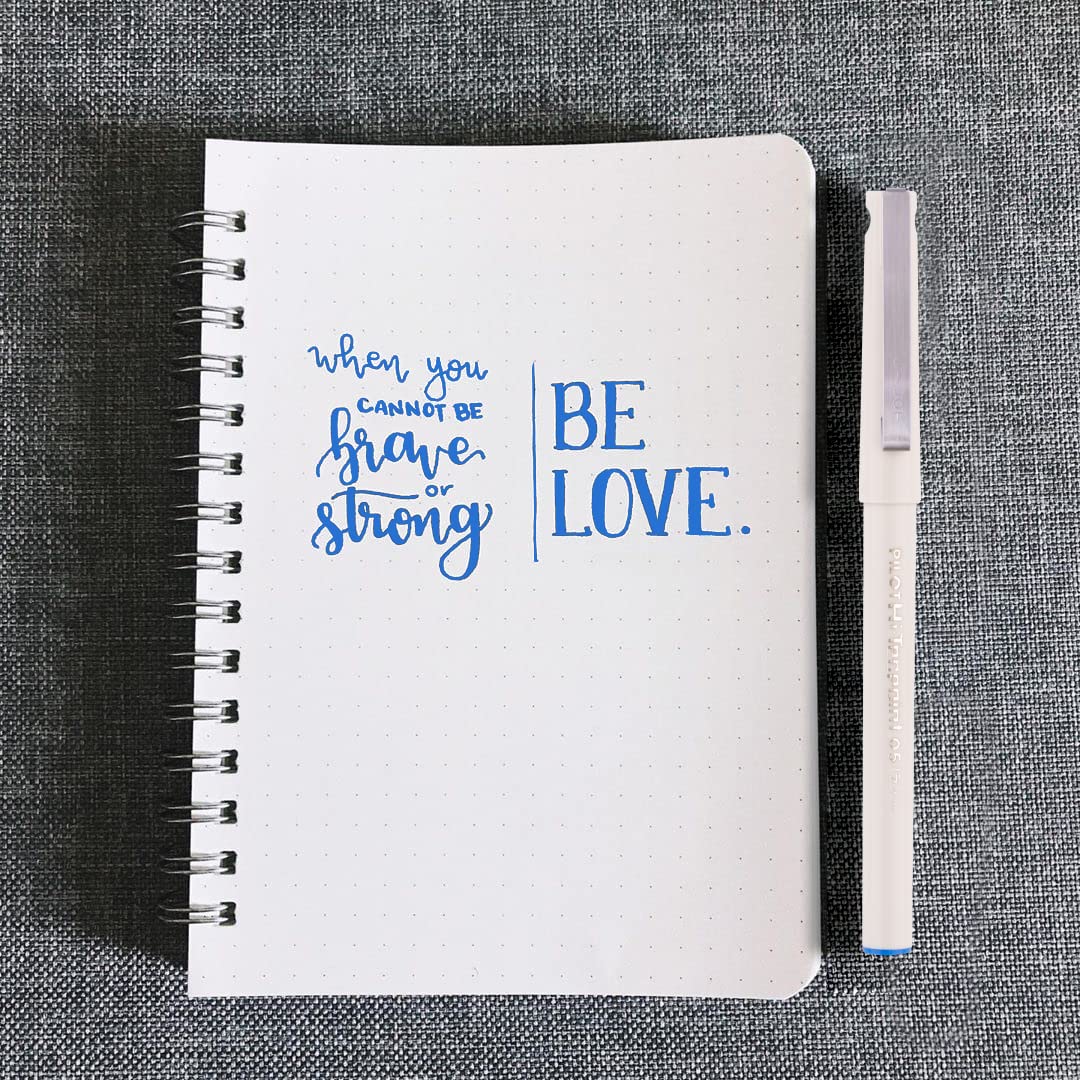 when you
CANNOT BE
brave
or
strong
BE
LOVE.
PILOT Hi-Tecpoint 05